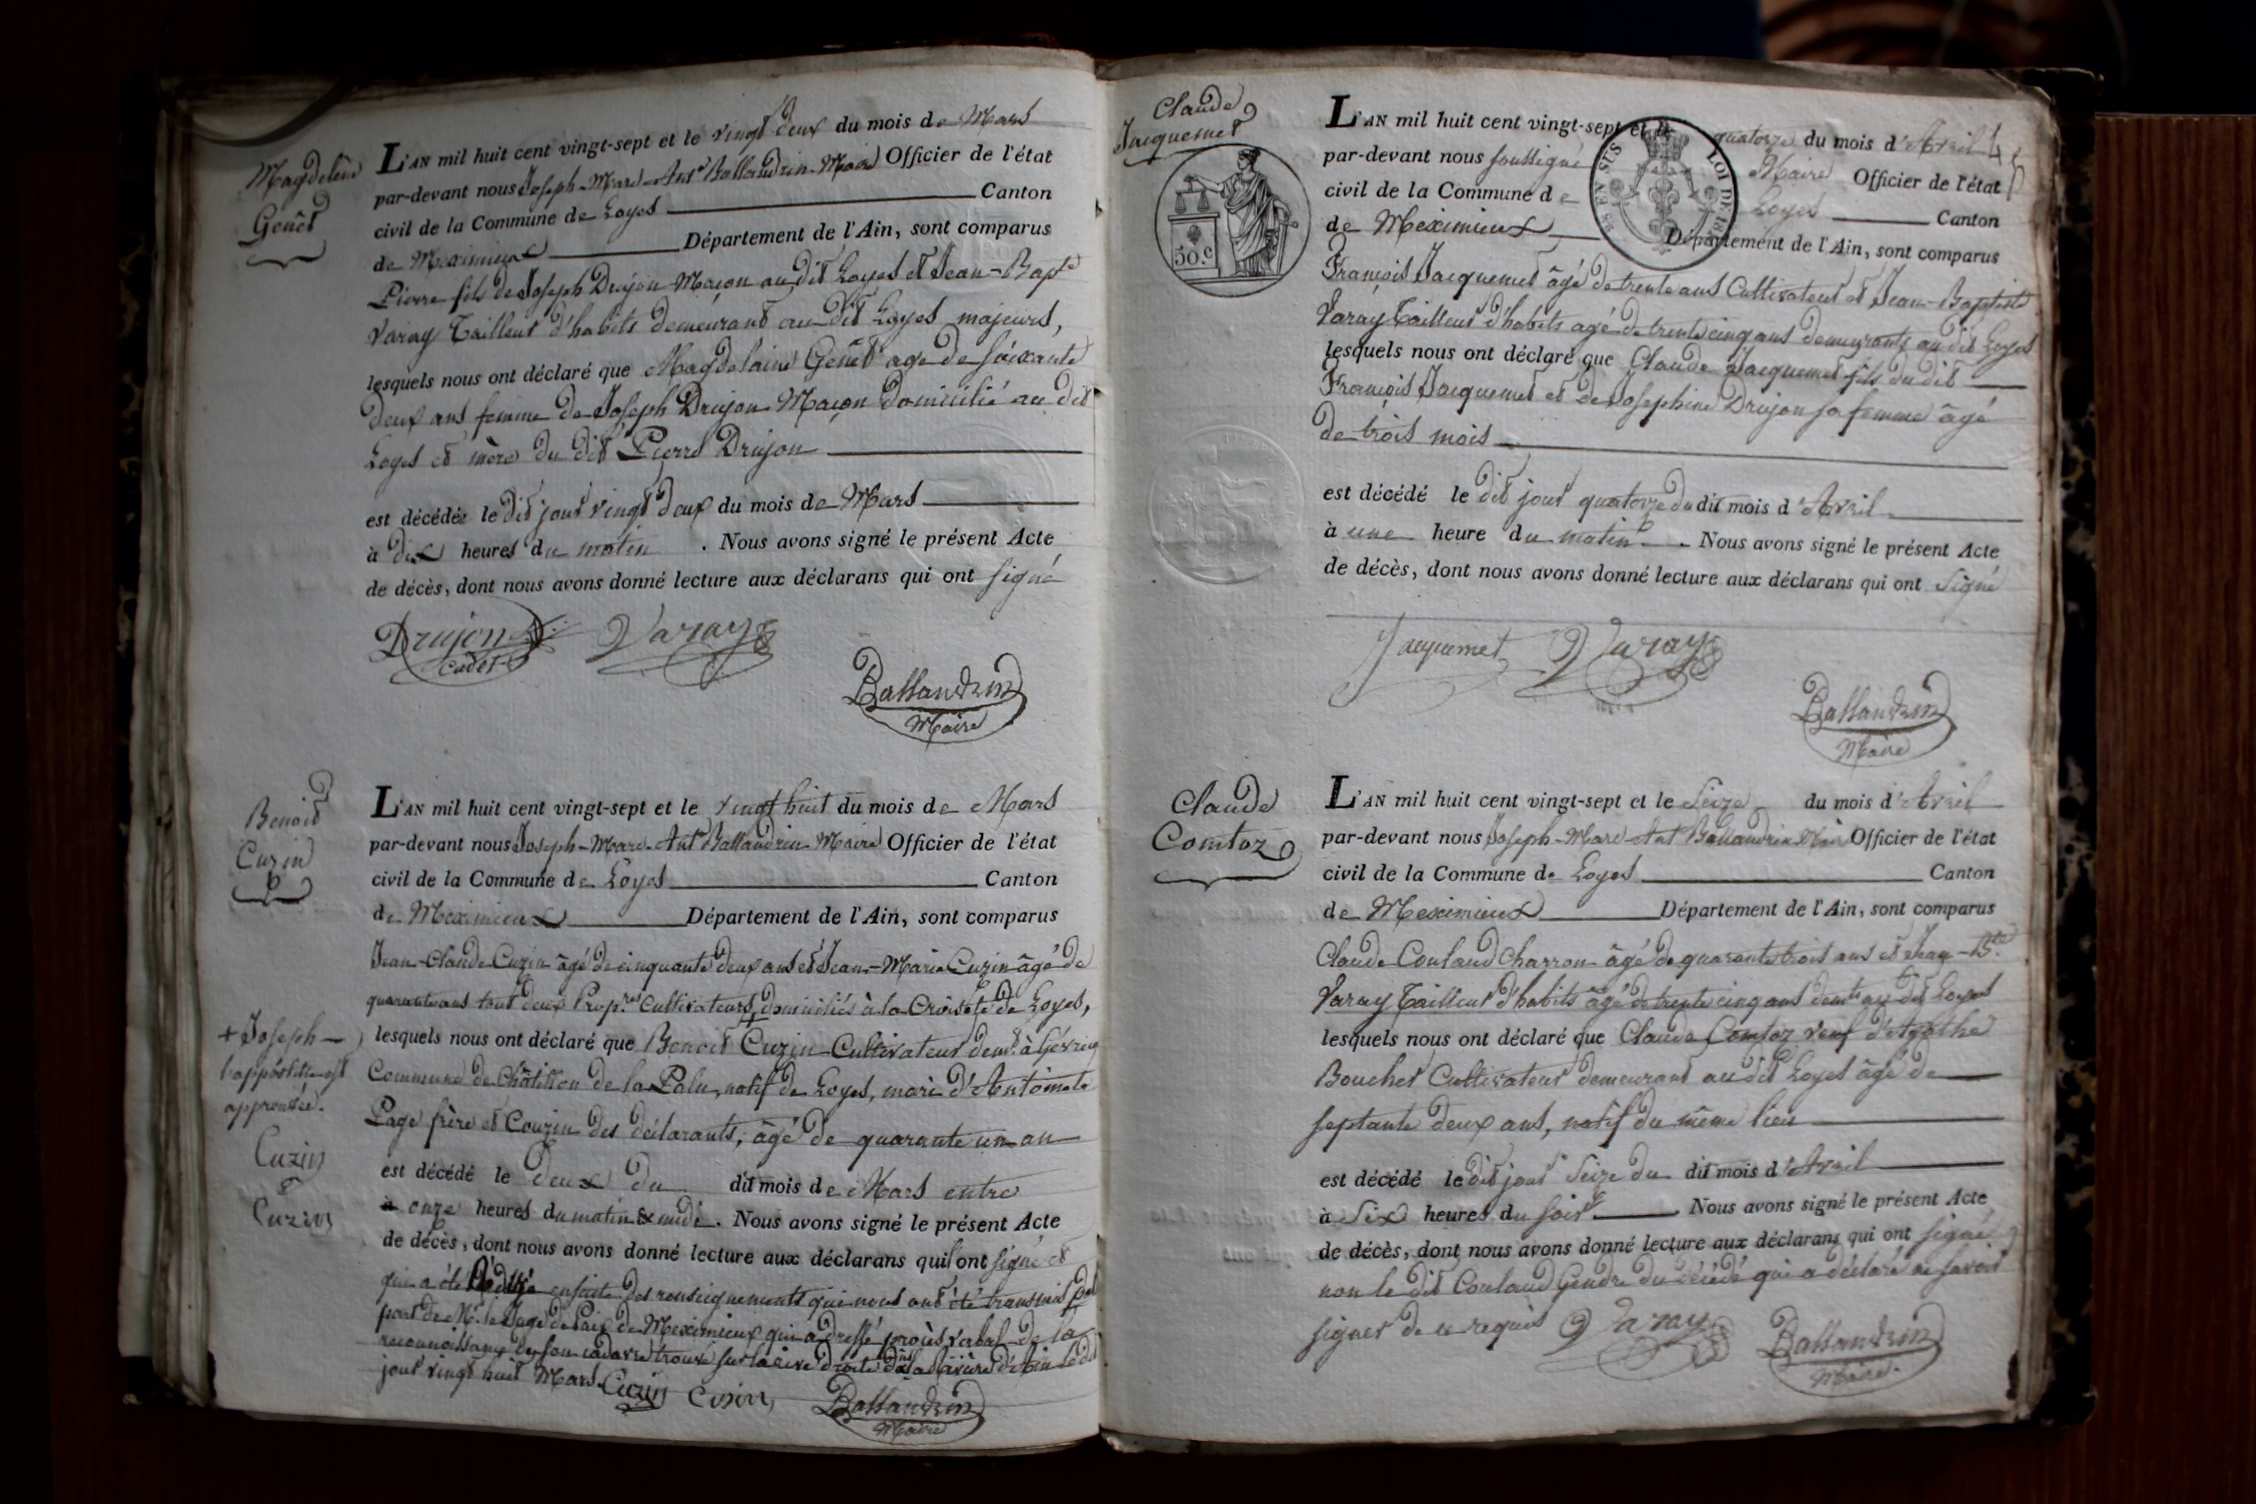 Magdeleine
Genêt
L'AN mil huit cent vingt-sept et le vingt deux du mois de Mars
par-devant nous Joseph-Marc-Ant.e Ballandrin Maire Officier de l'état
civil de la Commune de Loyes Canton
de Meximieux Département de l'Ain, sont comparus
Pierre fils de Joseph Drujon Maçon au dit Loyes et Jean-Bapt.e
Varay Tailleur d'habits demeurant au dit Loyes majeurs,
lesquels nous ont déclaré que Magdelaine Genêt age de soixante
deux ans femme de Joseph Drujon Maçon domicilié au dit
Loyes et mère du dit Pierre Drujon
est décédée le dit jour vingt deux du mois de Mars
à dix heures du matin . Nous avons signé le présent Acte
de décès, dont nous avons donné lecture aux déclarans qui ont signé
Drujon Varay
cadet
Ballandrin
Maire
Benoit
Cuzin
L'AN mil huit cent vingt-sept et le vingt huit du mois de Mars
par-devant nous Joseph-Marc-Ant.e Ballandrin Maire Officier de l'état
civil de la Commune de Loyes Canton
de Meximieux Département de l'Ain, sont comparus
Jean-Claude Cuzin âgé de cinquante deux ans et Jean-Marie Cuzin âgé de
quarante ans tous deux Prop.res cultivateurs domiciliés à la Croisete de Loyes,
lesquels nous ont déclaré que Benoit + Cuzin Cultivateur dem.t à Gévrieu
Commune de Châtillon de la Palu, natif de Loyes, mari d'Antoinete
Page frère et Couzin des déclarants, âgé de quarante un an
+ Joseph
l'appostille est
approuvée.
Cuzin
Cuzin
est décédé le deux du dit mois de Mars entre
à onze heures du matin & midi . Nous avons signé le présent Acte
de décès, dont nous avons donné lecture aux déclarans qui ont signé et
qui a été rédigé ensuite des renseignements qui nous ont été transmis par
part de Mr. le Juge de Paix de Meximieux qui a dressé procès verbal de la
reconnoissance de son cadavre trouvé sur la rive droite de la Rivière d'Ain le dit
jour vingt huit Mars. Cuzin Cuzin
Ballandrin
Maire
Claude
Jacquemet
L'AN mil huit cent vingt-sept et le quatorze du mois d'Avril
par-devant nous soussigné Maire Officier de l'état
civil de la Commune de Loyes Canton
de Meximieux Département de l'Ain, sont comparus
EN SUS LOI DE
50.c
François Jacquemet âgé de trente ans Cultivateur et Jean-Baptiste
Varay Tailleur d'habits agé de trente cinq ans demeurants au dit Loyes
lesquels nous ont déclaré que Claude Jacquemet fils du dit
François Jacquemet et de Josephine Drujon sa femme âgé
de trois mois
est décédé le dit jour quatorze du dit mois d'Avril
à une heure du matin . Nous avons signé le présent Acte
de décès, dont nous avons donné lecture aux déclarans qui ont Signé
Jacquemet Varay
Ballandrin
Maire
Claude
Comtoz
L'AN mil huit cent vingt-sept et le Seize du mois d'Avril
par-devant nous Joseph-Marc-Ant Ballandrin Maire Officier de l'état
civil de la Commune de Loyes Canton
de Meximieux Département de l'Ain, sont comparus
Claude Coulaud Charron âgé de quarante trois ans et Jean-B.te
Varay Tailleur d'habits âgé de trente cinq ans dem.ts au dit Loyes
lesquels nous ont déclaré que Claude Comtoz veuf d'Agathe
Boucher Cultivateur demeurant au dit Loyes âgé de
septante deux ans, natif du même lieu
est décédé le dit jour Seize du dit mois d'Avril
à Six heures du soir Nous avons signé le présent Acte
de décès, dont nous avons donné lecture aux déclarans qui ont signé
non le dit Coulaud Gendre du décédé qui a déclaré ne savoir
signer de ce requis Varay
Ballandrin
Maire.